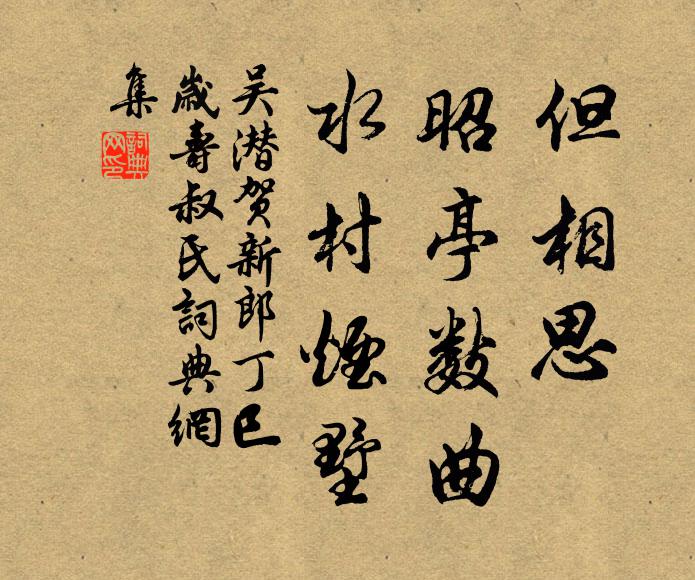 但相思
昭亭数曲
水村烟墅
吴潜贺新郎丁巳
岁寿叔氏詞典網
集
詞典
网印